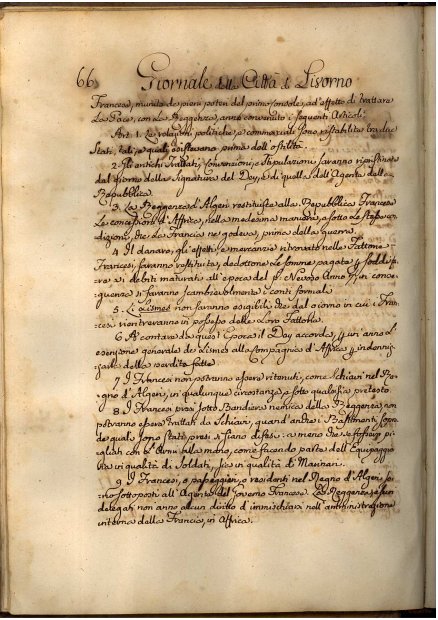 66 Giornale della Città di Livorno
Francese, munito de pieni poteri del primo Console, ad'effetto di trattare
la Pace, con la Reggenza, anno convenuto i seguenti Articoli:
Art. 1. Le relazioni politiche, e commerciali sono ristabilite tra due
Stati, tali, e quali esistevano prima dell'ostilità.
2. Gli antichi Trattati, Convenzioni, e Stipulazioni saranno
dal giorno della Signatura del Dey, e di quella dell'Agente della
Repubblica.
3. La Reggenza d'Algeri restituisce alla Repubblica Francese
Le concessioni d'Affrica, nella medesima maniera, e sotto le stesse con-
dizioni, che La Francia ne godeva, prima della guerra.
4. Il danaro, gli effetti, e mercanzie ritrovate nelle Fattorie
Francesi, saranno restituite, dedottone le somme pagate p. soddis-
re a i debiti maturati all'epoca del p.º Nevoso Anno In conse-
guenza si faranno scambievolmente i conti formali
5. Li Lismes non saranno esigibili che dal giorno in cui i Fran-
cesi rientreranno in possesso delle Loro Fattorie
6. A contare da quest'Epoca il Dey accorda, p. un anno l'e-
esenzione generale de' Lismes alla Compagnia d'Affrica p. indenniz-
zarle della perdite fatte
7. I Francesi non potranno essere ritenuti, come schiavi nel Re-
gno d'Algeri, in qualunque circostanza, e sotto qualsisia pretesto.
8. I Francesi presi sotto Bandiera nemica della Reggenza, non
potranno essere trattati da Schiavi, quand'anche i Bastimenti sopra
de quali sono stati presi si siano difesi: a meno che se fossero pi-
gliati con l'Armi alla mano, come facendo parte dell'Equipaggio
sia in qualità di Soldati, sia in qualità di Marinari.
9. I Francesi, o passeggieri, o residenti nel Regno d'Algeri, sa-
ranno sottoposti all'Agente del Governo Francese. La Reggenza, e i suoi
delegati non anno alcun diritto d'immischiarsi nell'amministrazione
interna della Francia, in Affrica.